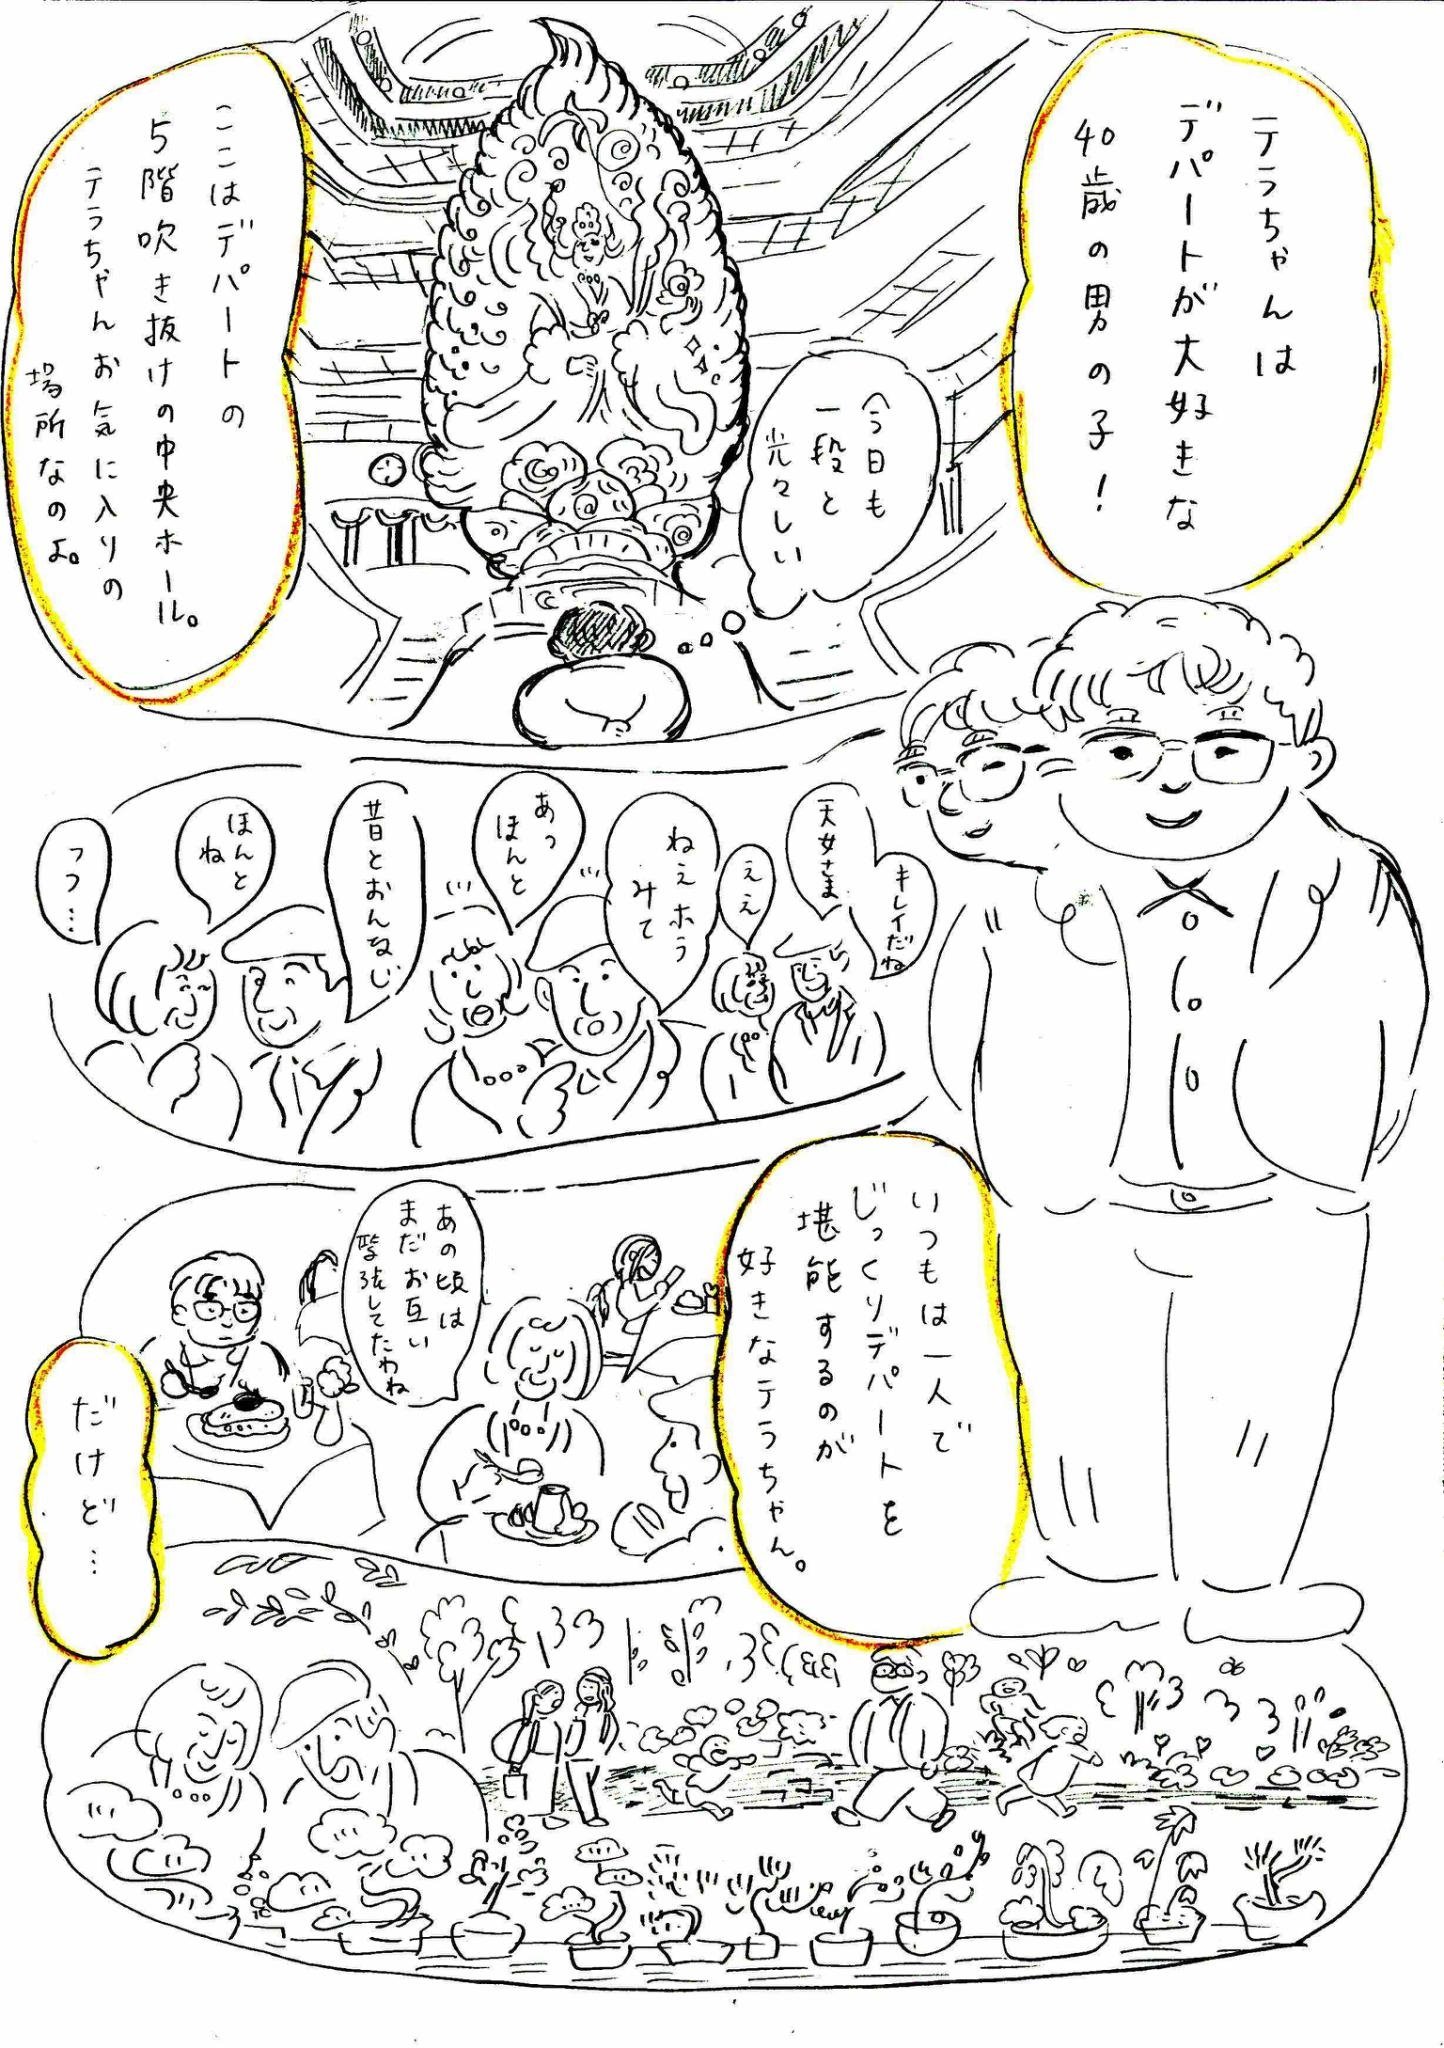 テラちゃんは
デパートが大好きな
40歳の男の子！
今日も
一段と
光々しい
ここはデパートの
5階吹き抜けの中央ホール。
テラちゃんお気に入りの
場所なのよ。
キレイだね
天女さま
ええ
ねぇホラ
みて
あっ
ほんと
昔とおんなじ
ほんと
ね
フフ…
いつもは一人で
じっくりデパートを
堪能するのが
好きなテラちゃん。
あの頃は
まだお互い
緊張してたわね
だけど…